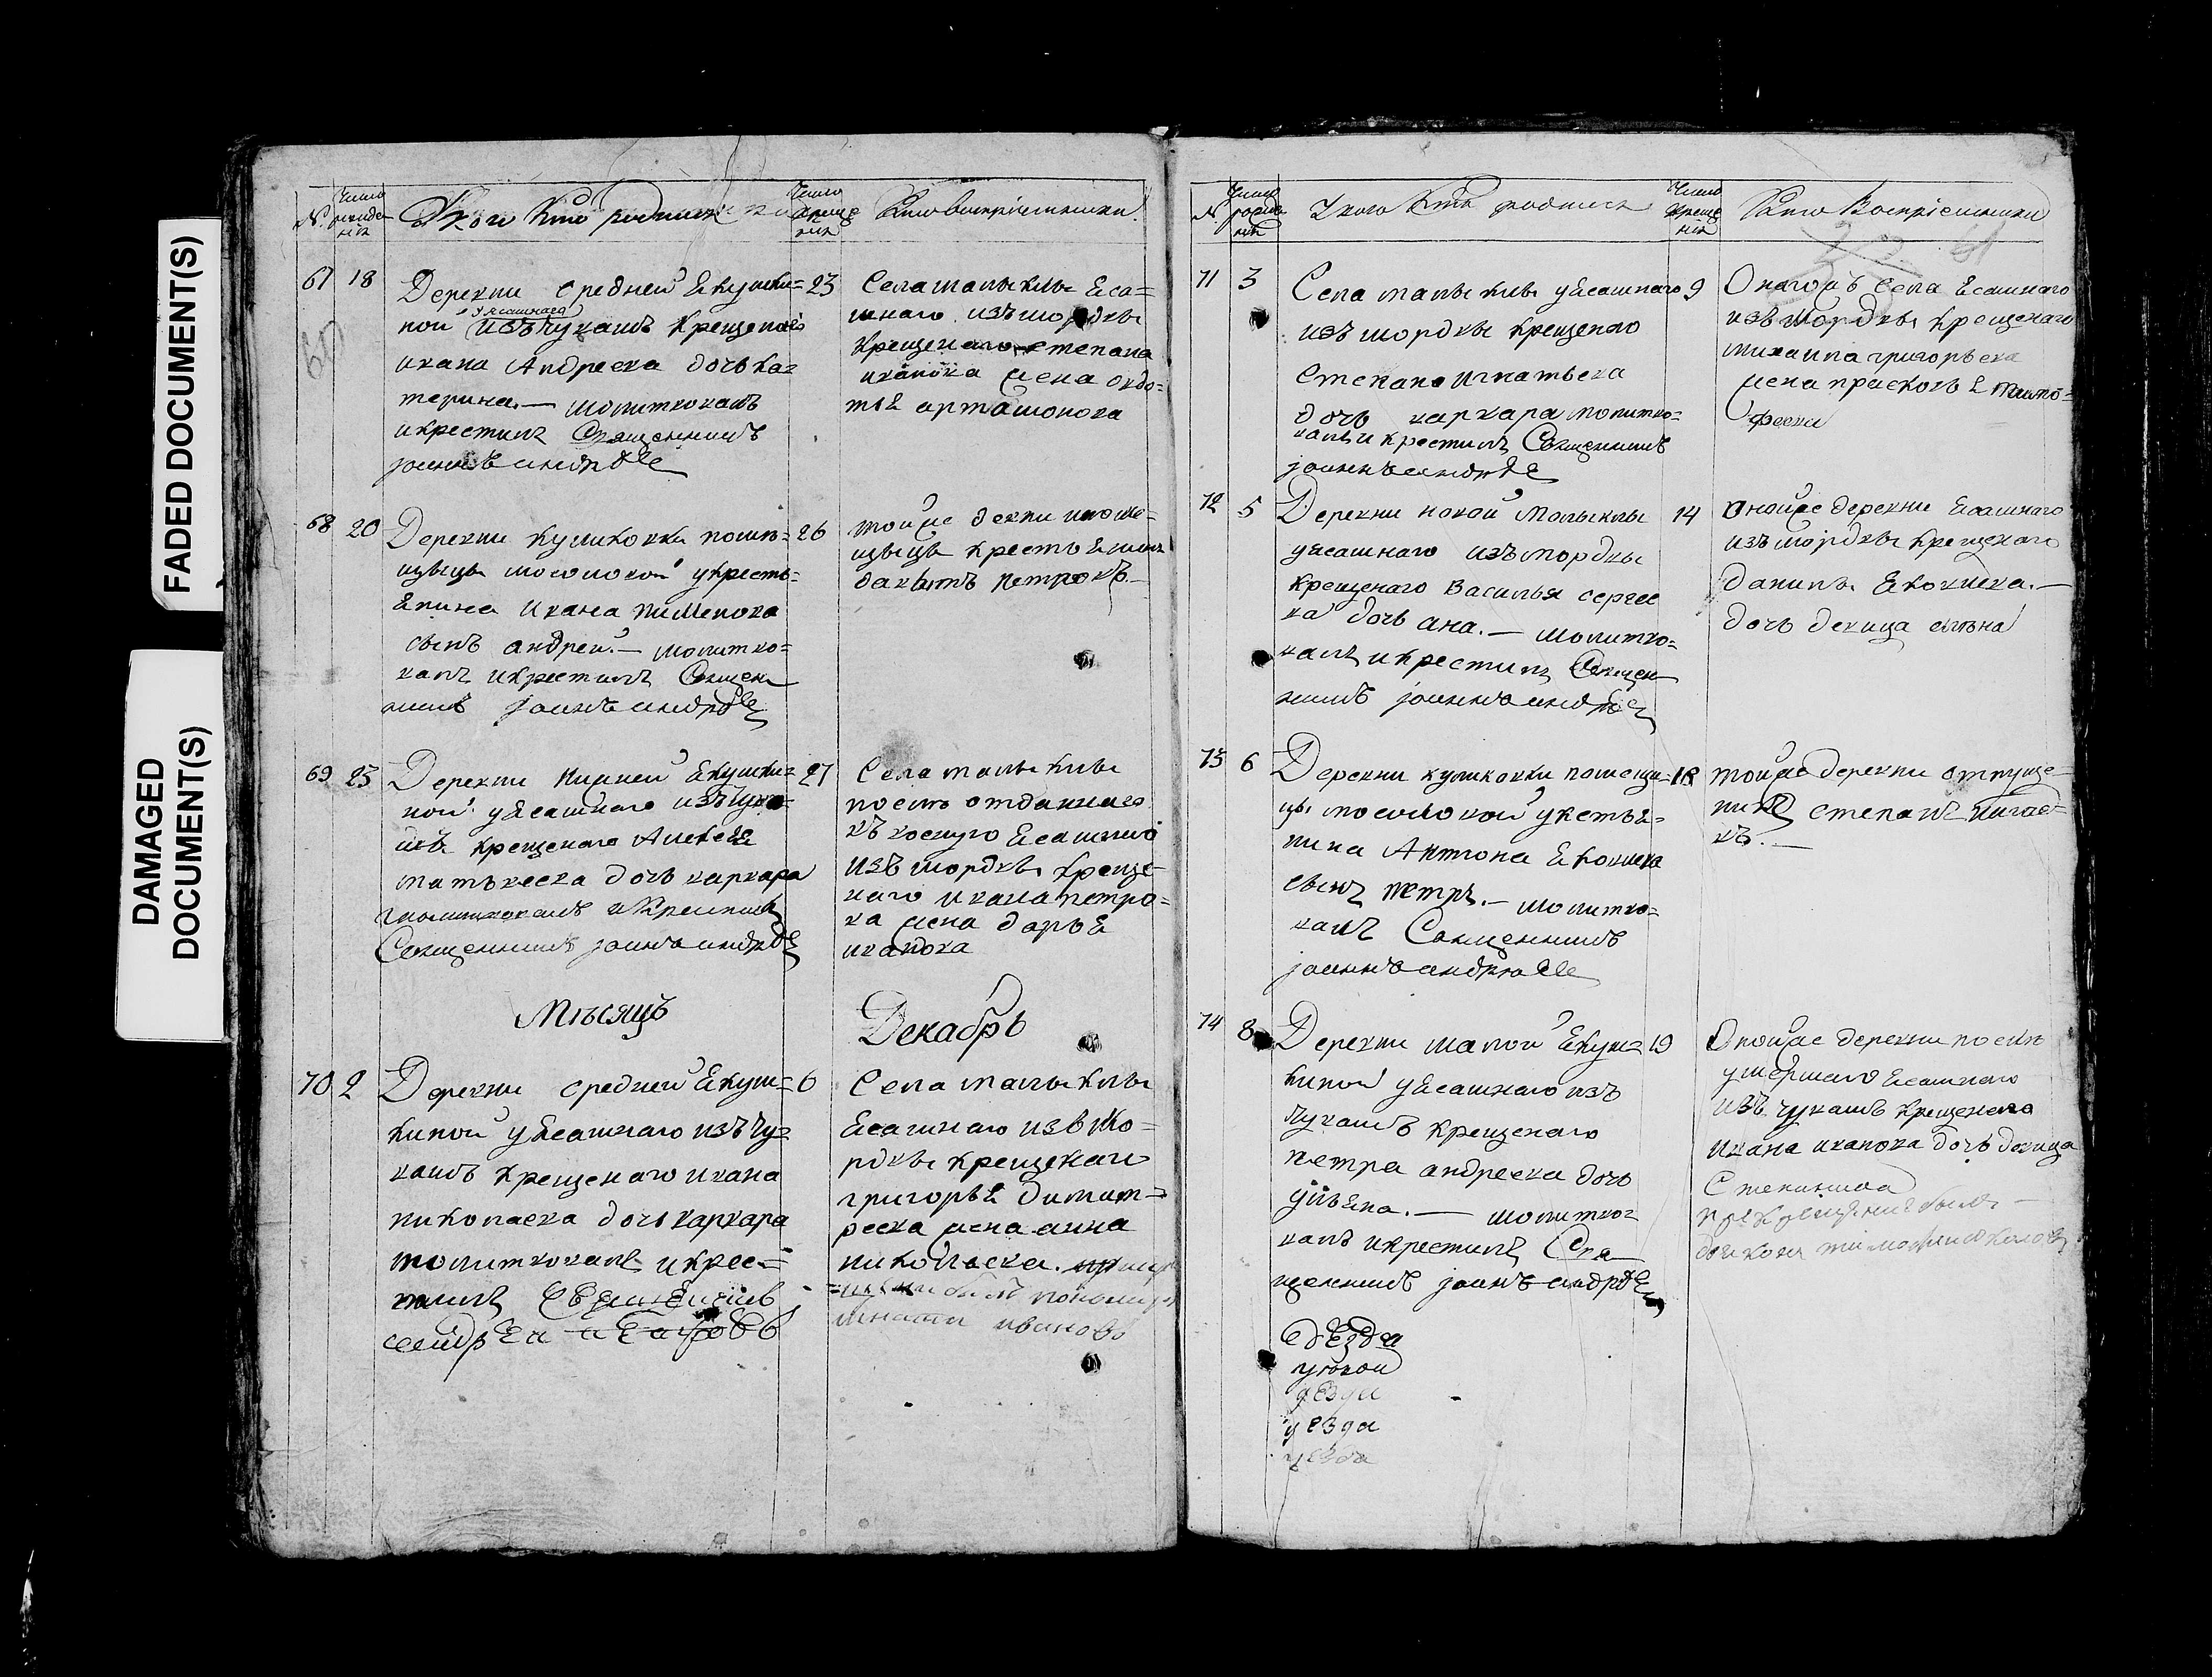 FADED DOCUMENT(S)
DAMAGED
DOCUMENT(S)
№ Число рожденія У кого кто родился Число крещенія Кто воспріемники
67 18
Деревни средней Якушки=
ной у ясашнаго изъ чувашъ крещенаго
ивана Андреева дочь ка=
терина. — молитвовалъ
и крестилъ Священникъ
јоаннъ андреевъ
23
Села малыклы Еса=
шнаго изъ мордвы
крещенаго степана
иванова жена овдо=
тья артамонова
68 20
Деревни куликовки помѣ=
щицы молоковой у кресть=
янина ивана пименова
сынъ андрей. — молитво=
валъ и крестилъ Священ
никъ јоаннъ андреевъ
26
той же девни
щицы крестьянинъ
давытъ петровъ. —
69 23
Деревни нижней якушки=
ной у ясашнаго изъ чува=
шъ крещенаго Алексея
матвеева дочь варвара
молитвовалъ и крестилъ
Священникъ јоаннъ андреевъ
27
Села малыклы
послѣ отданнаго
въ
изъ мордвы креще=
наго ивана петро=
ва жена дарья
иванова
Мѣсяцъ Декабрь
70 2
Деревни средней Якуш=
киной у ясашнаго изъ чу=
вашъ крещенаго ивана
николаева дочь варвара
молитвовалъ и крес=
тилъ Священникъ
андрей
6
Села малыклы
ясашнаго изъ мо=
рдвы крещенаго
григорья димит=
реева жена анна
николаева.
ивановъ
№ Число рожденія У кого кто родился Число крещенія Кто воспріемники
71 3
Села малыклы у ясашнаго
изъ мордвы крещенаго
степана игнатьева
дочь варвара молитво=
валъ и крестилъ Священникъ
јоаннъ андреевъ
9
Онагожъ села Есашнаго
изъ мордвы крещенаго
михаила григорьева
жена прасковья тимо=
феева
72 5
Деревни новой Малыклы
у ясашнаго изъ мордвы
крещенаго Василья сергее
ва дочь ана. — молитво=
валъ и крестилъ Священ
никъ јоаннъ андреевъ
14
Оной же деревни Есашнаго
изъ мордвы крещенаго
данилы Яковлева. —
дочь девица
73 6
Деревни куликовки помещи=
цы молоковой у кестья=
нина Антона Яковлева
сынъ петръ. — молитво=
валъ Священникъ
јоаннъ андреевъ
18
той же деревни отпуще
никъ степанъ
въ. —
74 8
Деревни малой Якуш=
киной у ясашнаго изъ
чувашъ крещенаго
петра андреева дочь
ульяна. — молитво=
валъ и крестилъ Свя
щенникъ јоаннъ андреевъ
19
Оной же деревни послѣ
умершаго Есашнаго
изъ чувашъ крещенаго
ивана иванова дочь девица
при крещение былъ
уезда
уезда
уезда